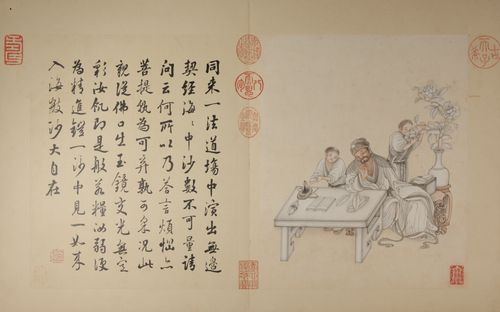 同來一法道場中演出無邊
契經海〻中沙數不可量請
問云何所以乃答言煩惱亦
菩提孰為可弃孰可采况此
親從佛口生玉鏡交光無定
彩汝飢即是般若糧汝弱便
為精進鎧一沙中見一如來
入海數沙大自在